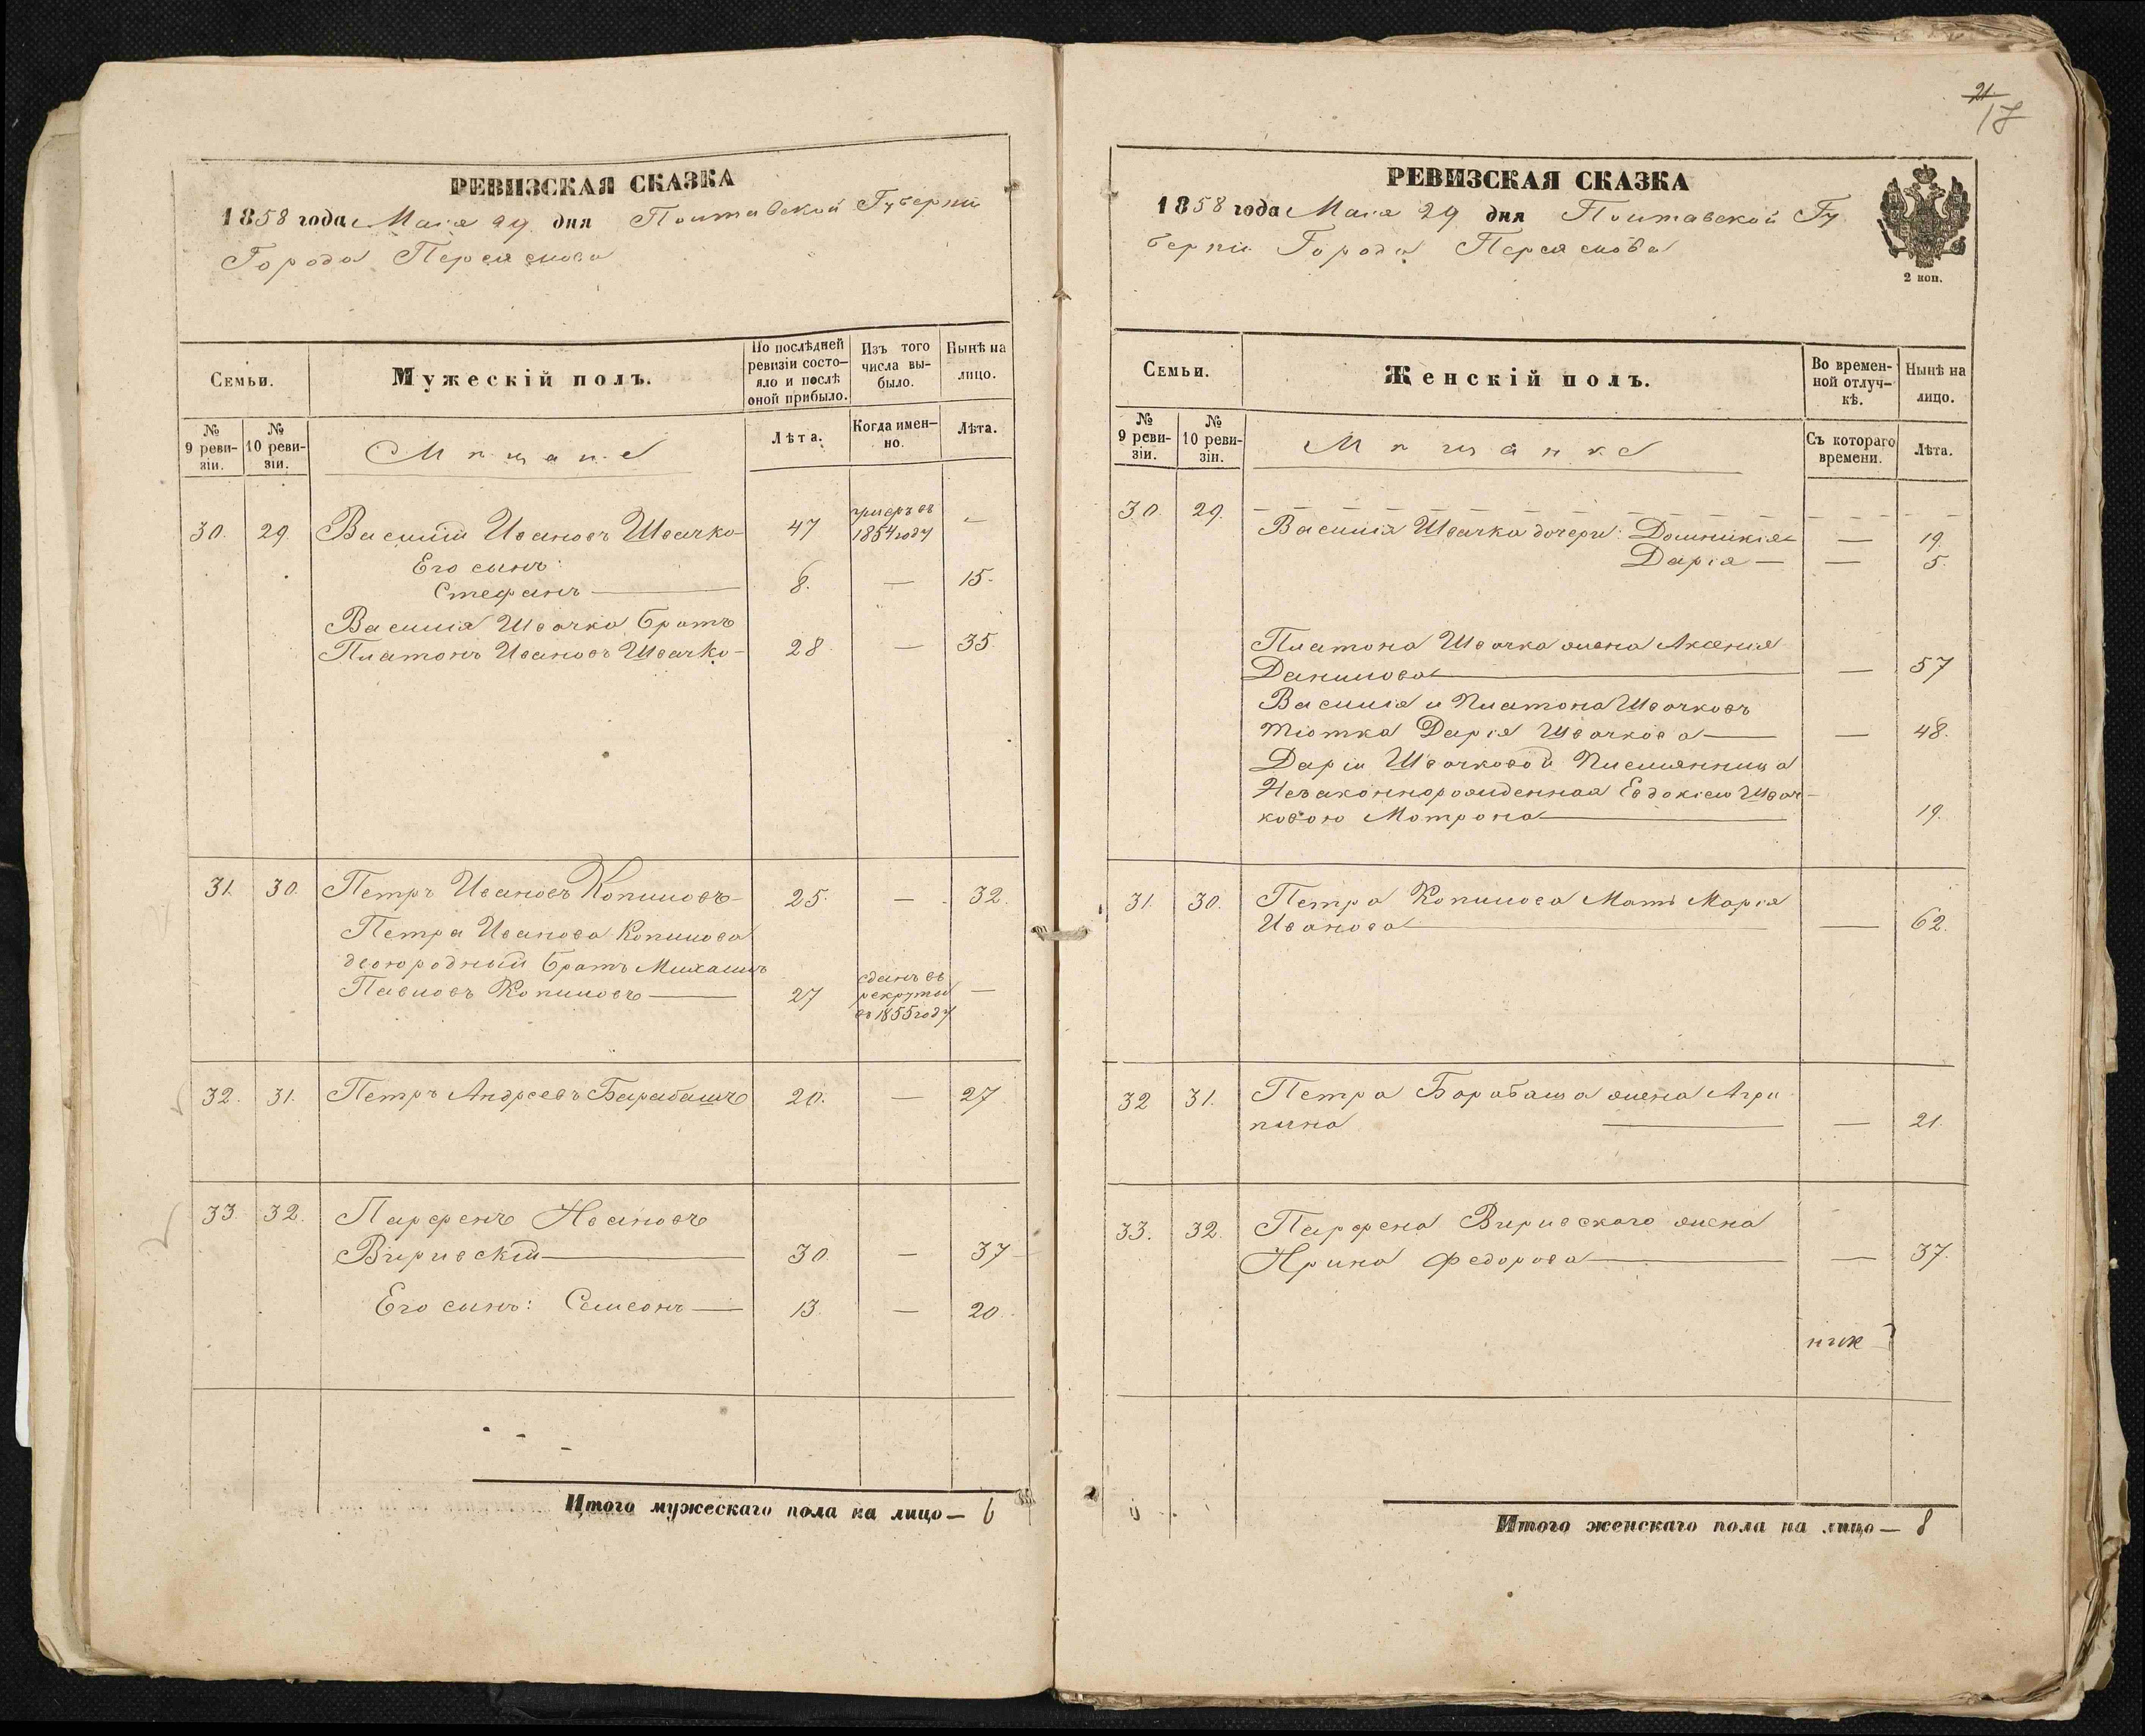 21
17
РЕВИЗСКАЯ СКАЗКА
1858 года Маія 29 дня Полтавской Губерніи
Города Переяслова
Семьи.
Мужескій полъ.
По послѣдней ревизіи состояло и послѣ оной прибыло.
Изъ того числа выбыло.
Нынѣ на лицо.
№ 9 ревизіи.
№ 10 ревизіи.
Мѣщане
Лѣта.
Когда именно.
Лѣта.
30. 29. Василій Ивановъ Швачко 47 умеръ въ 1854 году —
Его сынъ:
Стефанъ — 8. — 15.
Василія Швачко братъ
Платонъ Ивановъ Швачко 28 — 35.
31. 30. Петръ Ивановъ Копиловъ 25. — 32.
Петра Иванова Копилова
двоюродный братъ Михаилъ
Павловъ Копиловъ — 27 сданъ въ рекруты въ 1855 году —
32. 31. Петръ Андреевъ Барабашъ 20. — 27
33. 32. Парфенъ Ивановъ
Виривскій — 30. — 37
Его сынъ: Самсонъ — 13. — 20.
Итого мужескаго пола на лицо — 6
РЕВИЗСКАЯ СКАЗКА
1858 года Маія 29 дня Полтавской Гу
берніи Города Переяслова
2 коп.
Семьи.
Женскій полъ.
Во временной отлучкѣ.
Нынѣ на лицо.
№ 9 ревизіи.
№ 10 ревизіи.
Мѣщанке
Съ котораго времени.
Лѣта.
30. 29.
Василія Швачка дочери: Домникія — 19.
Дарія — — 5.
Платона Швачка жена Аксенія
Данилова — — 57
Василія и Платона Швачковъ
тіотка Дарія Швачкова — — 48.
Даріи Швачковой Племянница
Незаконнорожденная Евдокією Швач-
ковою Мотрона — 19.
31. 30. Петра Копилова Мать Марія
Иванова — — 62.
32 31. Петра Барабаша жена Агри
пина — — 21.
33. 32. Парфена Виривскаго жена
Ирина Федорова — — 37.
Итого женскаго пола на лицо — 8